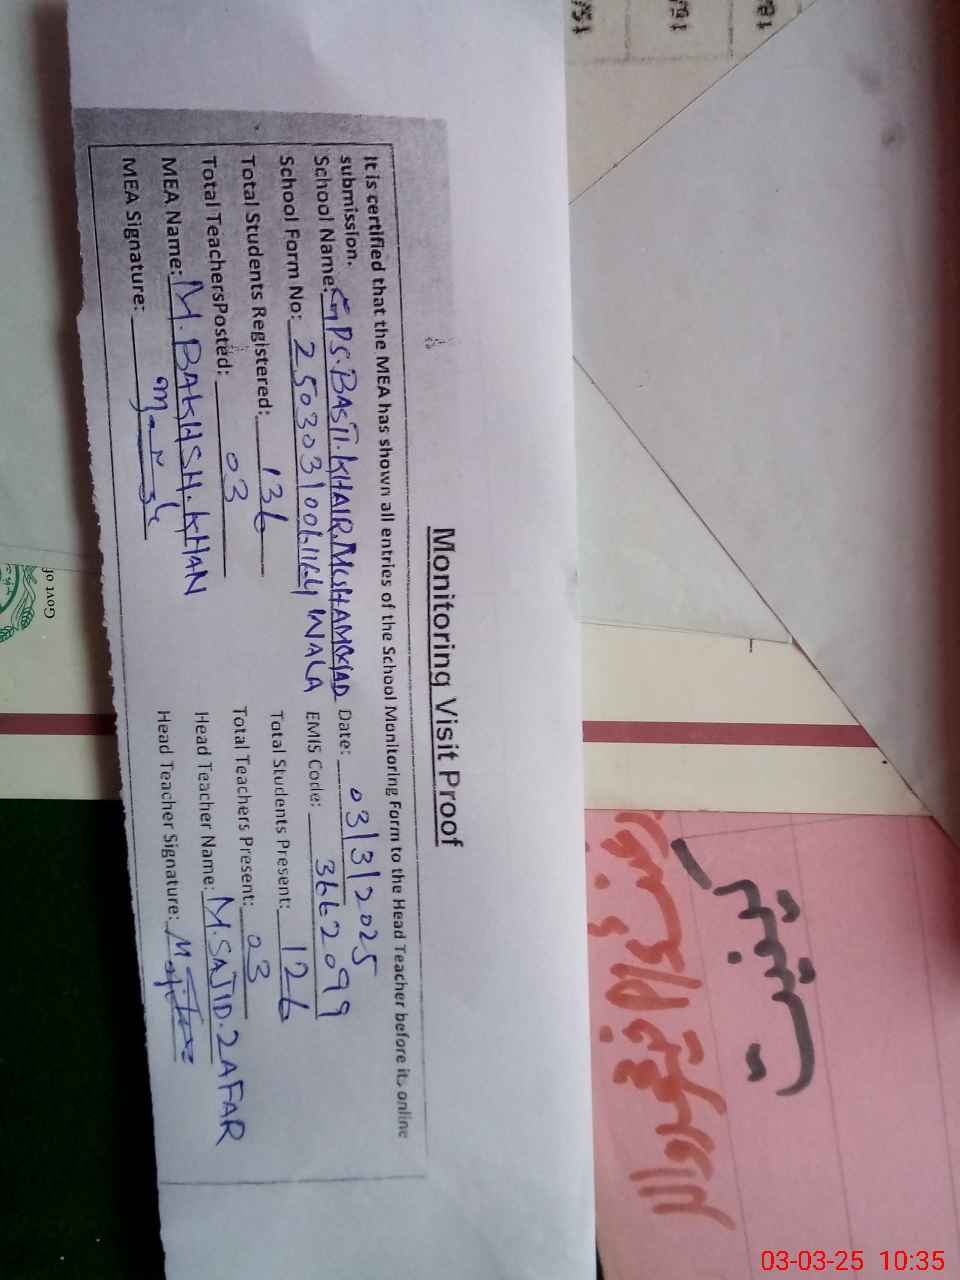 Monitoring Visit Proof
It is certified that the MEA has shown all entries of the School Monitoring Form to the Head Teacher before its online
submission.
School Name: GPS.BASTI.KHAIR.MUHAMMAD WALA Date: 03/3/2025
School Form No: 25030310061164 EMIS Code: 3662099
Total Students Registered: 136 Total Students Present: 126
Total TeachersPosted: 03 Total Teachers Present: 03
MEA Name: M.BAKHSH.KHAN Head Teacher Name: M.SAJID.ZAFAR
MEA Signature: Head Teacher Signature:
Govt of
کیفیت
03-03-25 10:35